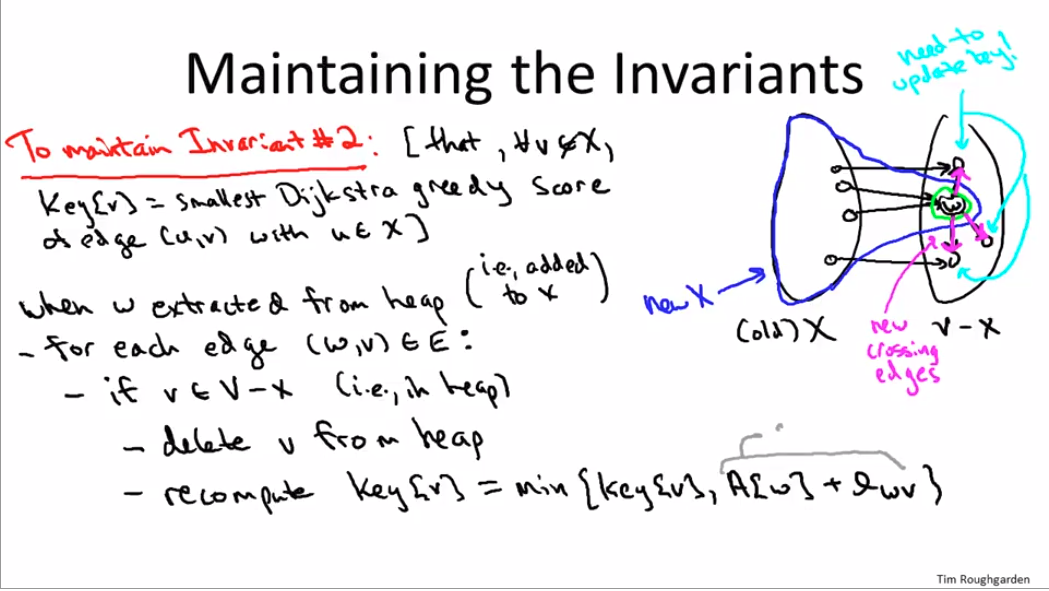 Maintaining the Invariants
need to
update key!
To maintain Invariant #2: [that, ∀v∉X,
Key[v] = smallest Dijkstra greedy score
of edge (u,v) with u∈X]
when w extracted from heap (i.e., added
to X)
- for each edge (w,v)∈E:
- if v∈V-X (i.e., in heap)
- delete v from heap
- recompute key[v] = min{key[v], A[w] + lwv}
new X
(old) X
V-X
new
crossing
edges
w
Tim Roughgarden